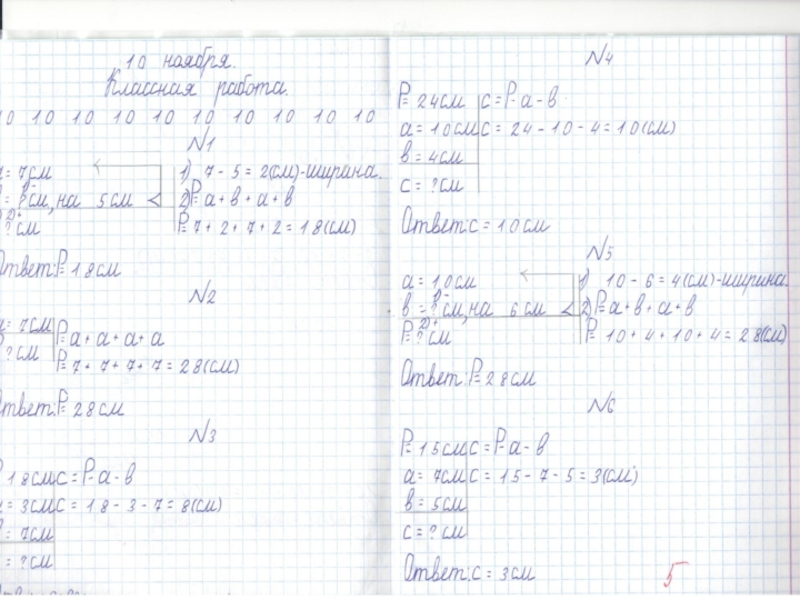 10 ноября.
Классная работа.
10 10 10 10 10 10 10 10 10 10
N1
= 7см
= ?см, на 5см <
?см
1) 7 - 5 = 2(см)-ширина.
2) P = a + в + a + в
P = 7 + 2 + 7 + 2 = 18(см)
Ответ: P = 18см
N2
a = 7см
?см
P = a + a + a + a
P = 7 + 7 + 7 + 7 = 28(см)
Ответ: P = 28см
N3
18см
c = P - a - в
= 3см
c = 18 - 3 - 7 = 8(см)
= 7см
= ?см
N4
P = 24см
c = P - a - в
a = 10см
c = 24 - 10 - 4 = 10(см)
в = 4см
c = ?см
Ответ: c = 10см
N5
a = 10см
в = ?см, на 6см <
P = ?см
1) 10 - 6 = 4(см)-ширина.
2) P = a + в + a + в
P = 10 + 4 + 10 + 4 = 28(см)
Ответ: P = 28см
N6
P = 15см
c = P - a - в
a = 7см
c = 15 - 7 - 5 = 3(см)
в = 5см
c = ?см
Ответ: c = 3см
5